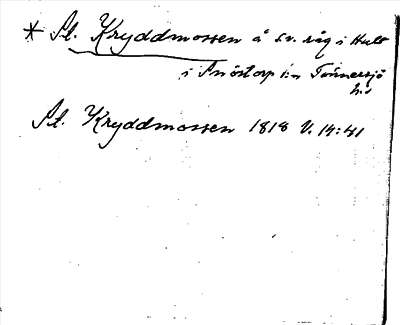 * St. Kryddmossen å s.v. råg i Hult
i Snöstorp i:n Tönnersjö
h:d
St. Kryddmossen 1818 V. 14:41